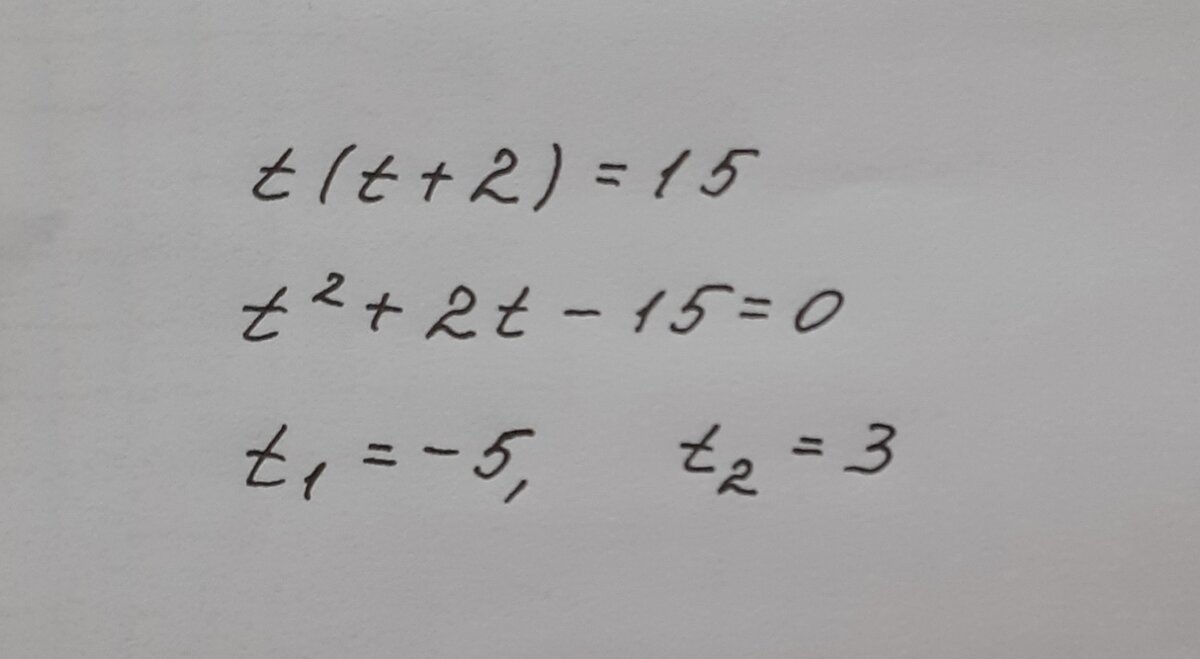 t(t+2)=15
t²+2t-15=0
t₁=-5, t₂=3